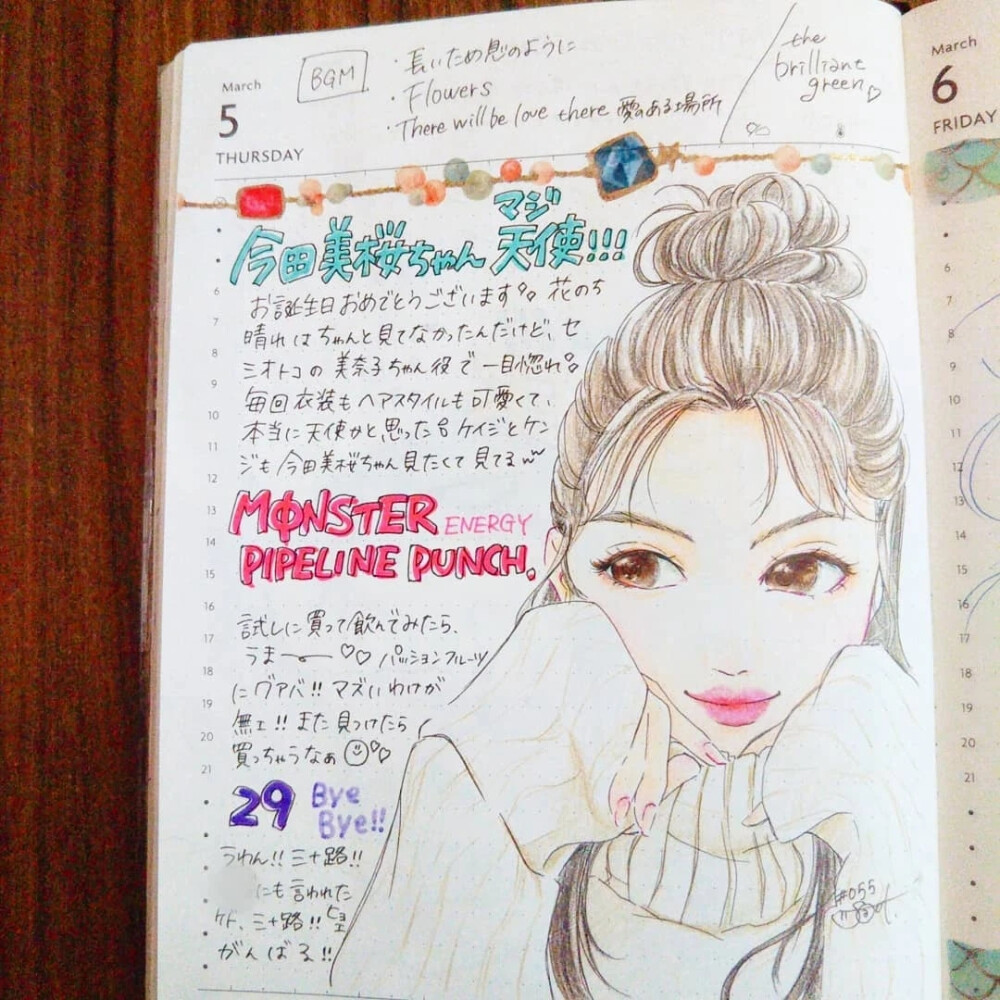 March
5
THURSDAY
BGM
・長いため息のように
・Flowers
・There will be love there 愛のある場所
the
brilliant
green♡
March
6
FRIDAY
マジ
今田美桜ちゃん 天使!!!
お誕生日おめでとうございます 花のち
晴れはちゃんと見てなかったんだけど、セ
ミオトコの美奈子ちゃん役で一目惚れ
毎回衣装もヘアスタイルも可愛くて、
本当に天使かと思った ケイジとケン
ジも今田美桜ちゃん見たくて見てる
MONSTER ENERGY
PIPELINE PUNCH.
試しに買って飲んでみたら、
うまー ♡♡ パッションフルーツ
にグアバ!! マズいわけが
無ェ!! また見つけたら
買っちゃうなぁ
29 Bye
Bye!!
うわん!! 三十路!!
にも言われた
ケド、三十路!! ヒョエ
がんばる!!
#055
6
7
8
9
10
11
12
13
14
15
16
17
18
19
20
21
6
7
8
9
10
11
17
18
19
20
21